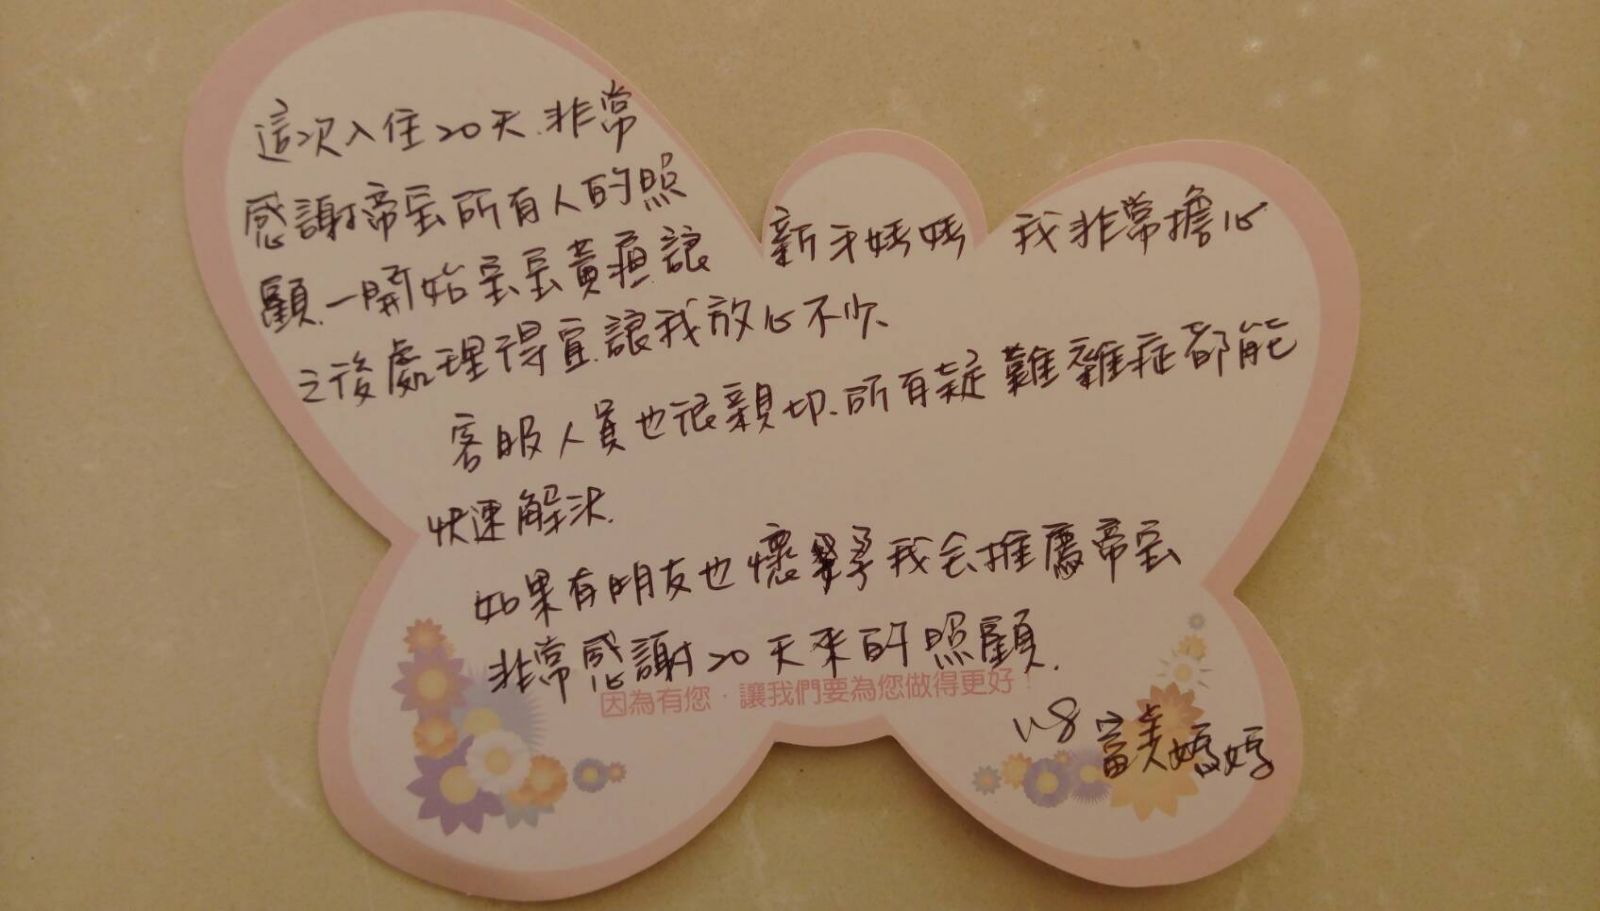 這次入住20天.非常
感謝帝寶所有人的照
顧.一開始寶寶黃疸讓 新手媽媽 我非常擔心
之後處理得宜.讓我放心不少、
客服人員也很親切.所有疑難雜症都能
快速解決.
如果有朋友也懷孕我会推薦帝寶
非常感謝20天來的照顧.
因為有您‧讓我們要為您做得更好!
媽媽